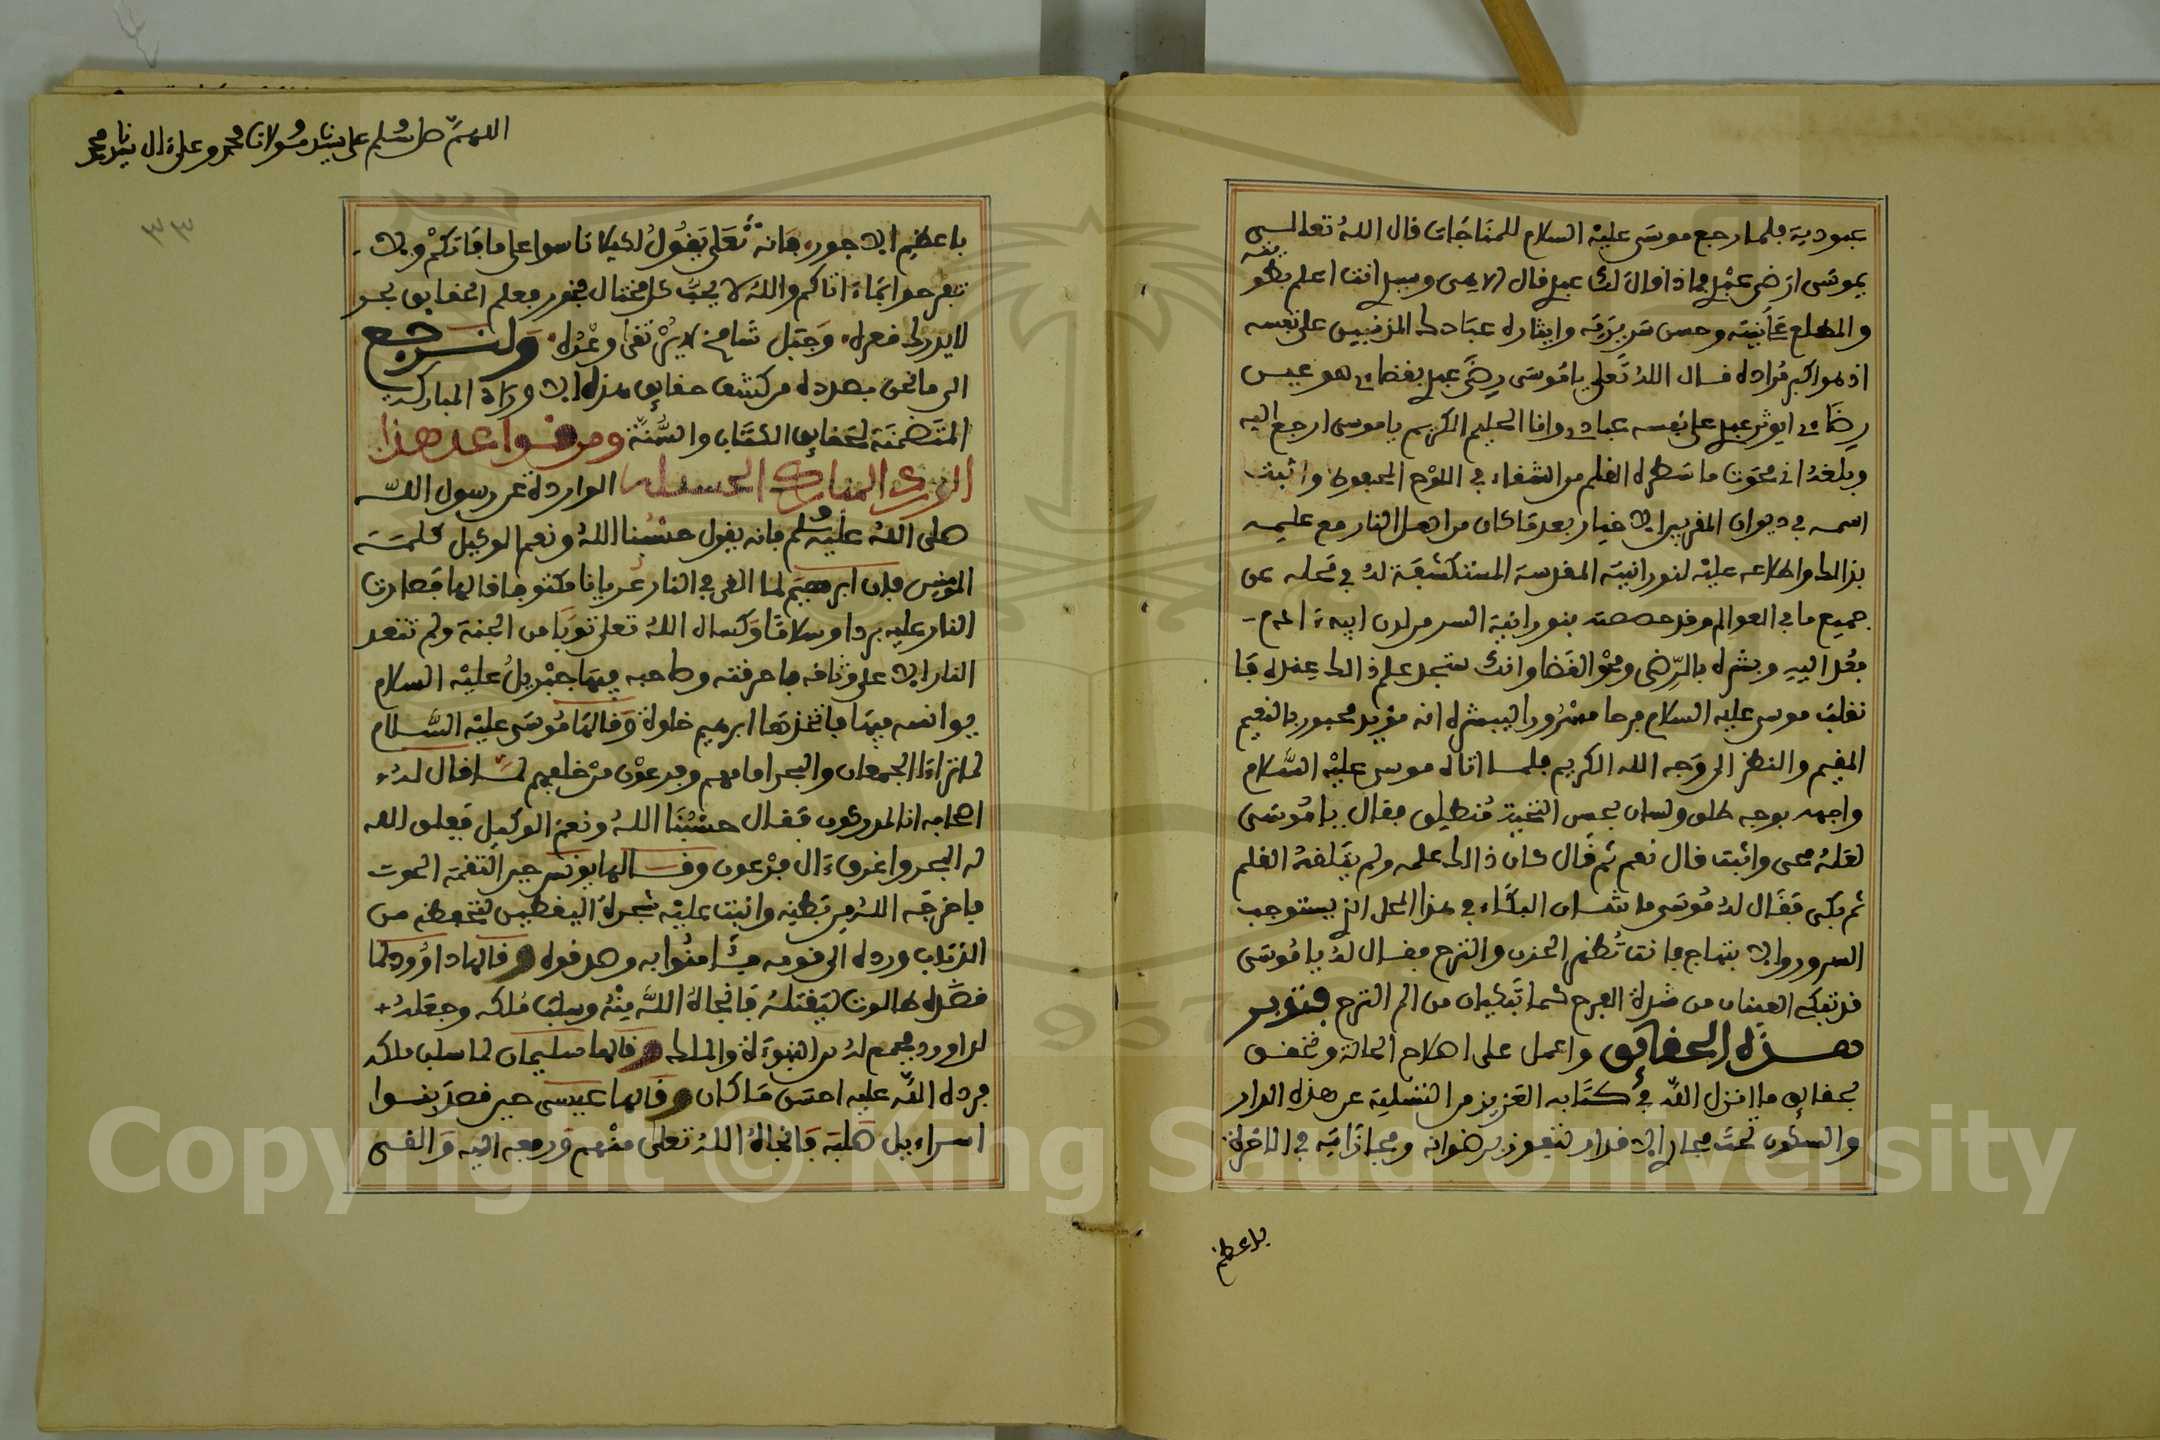 عبودية فلما رجع موسى عليه السلام للمناجات قال الله تعالى
يموسى ارضى عبدي فماذا قال لك عبدي قال الاهى وسيدي انت اعلم بنطقه
والمطلع على نيته وحسن سريرته وايثاره عبادك المذنبين على نفسه
اذ هو اكبر مراده فقال الله تعلى ياموسى رضى عبدي بقضاءى هو عين
رضاءى ايوثر عبدي على نفسه عبادى وانا الحليم الكريم ياموسى ارجع اليه
وبلغه انى محوت ما سطره القلم من الشقاء في اللوح المحفوظ واثبت
اسمه في ديوان المقربين الاخيار بعد ما كان من اهل النار مع علمه
بذالك واطلاعه عليه لنورانيته المقدسة المستكشفة له في محله عن
جميع ما في العوالم وقد خصصته بنورانية السر من لدن ابيه ءادم
فعد اليه وبشره بالرضى ومحو القضا وانك ستجد علم ذالك عنده فا
نقلب موسى عليه السلام فرحا مسرورا ليبشره انه مؤيد محبور بالنعيم
المقيم والنظر الى وجه الله الكريم فلما اتاه موسى عليه السلام
واجهه بوجه طلق ولسان بحسن التحية منطيلق فقال ياموسى
لعله محى واثبت قال نعم ثم قال كان ذالك علمه ولم يتلقه القلم
ثم بكى فقال له موسى ما شان البكاء في هذا المحل الذي يستوجب
السرور والابتهاج فانت تظهر الحزن والترح فقال له ياموسى
قد تبكي العينان من شدة الفرح كما تبكيان من الم الترح فتدبر
هذه الحقائق واعمل على اصلاح الحالة وتحقق
بحقائق ما انزل الله في كتابه العزيز من التسلية عن هذه الدار
والسكون تحت مجاري الاقدار لتفوز برضوانه ومجازاته في الاخرة
باعظم
اللهم صل وسلم على سيدنا ومولانا محمد وعلى ءال سيدنا محمد
٣٣
باعظيم الاجور فانه تعلى يقول لكيلا تاسوا على ما فاتكم ولا
تفرحوا بما ءاتاكم والله لا يحب كل مختال فخور فعلم الحقايق بحر
لا يدرك قعره وجبل شامخ لا يرتقى وعره ولنرجع
الى ما نحن بصدده من كشف حقايق هذه الاوراد المباركة
المتضمنة لحقايق الكتاب والسنة ومن قواعد هذا
الورد المبارك الحسبلة الواردة عن رسول الله
صلى الله عليه وسلم فانه يقول حسبنا الله ونعم الوكيل كلمة
المومنين فان ابرهيم لما القي في النار عريانا مكتوفا قالها فصارت
النار عليه بردا وسلاما وكساه الله تعلى ثوبا من الجنة ولم تتعد
النار الا على وثاقه فاحرقته وصاحبه فيها جبريل عليه السلام
يوانسه فيها فاتخذها ابرهيم خلوة وقالها موسى عليه السلام
لما تراءا الجمعان والبحر امامهم وفرعون من خلفهم لما قال له
اصحابه انا لمدركون فقال حسبنا الله ونعم الوكيل ففلق الله
له البحر واغرق ءال فرعون وقالها يونس حين التقمه الحوت
فاخرجه الله من بطنه وانبت عليه شجرة اليقطين لتحفظه من
الذباب ورده الى قومه فئامنوا به وصدقوه وقالها داوود لما
قصده طالوت ليقتله فانجاه الله منه وسلب ملكه وجعله
لداوود فجمع له بين النبوءة والملك وقالها سليمان لما سلب ملكه
فرده الله عليه احسن ما كان وقالها عيسى حين قصد بنوا
اسراءيل صلبه فانجاه الله تعلى منهم ورفعه اليه والقى
Copyright © King Saud University
1957